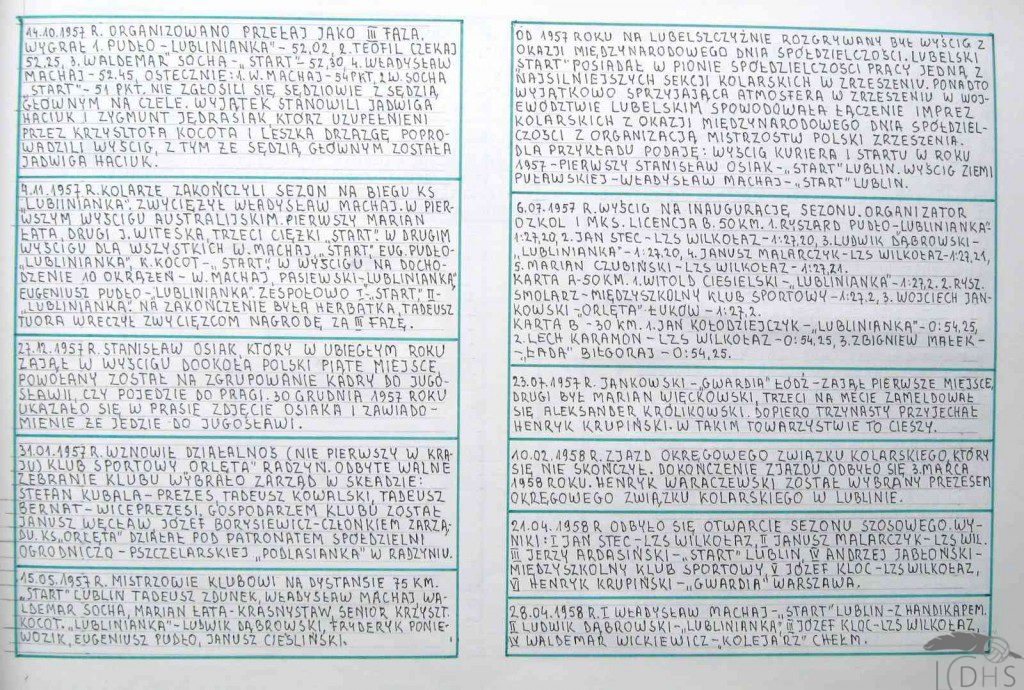 14.10.1957 R. ORGANIZOWANO PRZEŁAJ JAKO III FAZA.
WYGRAŁ 1. PUDŁO-„LUBLINIANKA"- 52,02, 2. TEOFIL CZEKAJ
52,25, 3. WALDEMAR SOCHA-„START"- 52,30, 4. WŁADYSŁAW
MACHAJ - 52.45, OSTECZNIE: 1. W. MACHAJ - 54 PKT, 2 W. SOCHA
„START"- 51 PKT. NIE ZGŁOSILI SIĘ SĘDZIOWIE Z SĘDZIĄ
GŁÓWNYM NA CZELE. WYJĄTEK STANOWILI JADWIGA
HACIUK I ZYGMUNT JĘDRASIAK KTÓRZ UZUPEŁNIENI
PRZEZ KRZYSZTOFA KOCOTA I LESZKA DRZAZGĘ POPRO-
WADZILI WYŚCIG, Z TYM ŻE SĘDZIĄ GŁÓWNYM ZOSTAŁA
JADWIGA HACIUK.
9.11.1957 R. KOLARZE ZAKOŃCZYLI SEZON NA BIEGU KS
„LUBLINIANKA". ZWYCIĘŻYŁ WŁADYSŁAW MACHAJ. W PIER-
WSZYM WYŚCIGU AUSTRALIJSKIM. PIERWSZY MARIAN
ŁATA, DRUGI J. WITESKA, TRZECI CIĘŻKI „START". W DRUGIM
WYŚCIGU DLA WSZYSTKICH W. MACHAJ-„START", EUG. PUDŁO-
„LUBLINIANKA", K. KOCOT-„START". W WYŚCIGU NA DOCHO-
DZENIE 10 OKRĄŻEŃ - W. MACHAJ, PASIEWSKI-„LUBLINIANKA",
EUGENIUSZ PUDŁO-„LUBLINIANKA". ZESPOŁOWO I-„START", II-
„LUBLINIANKA". NA ZAKOŃCZENIE BYŁA HERBATKA, TADEUSZ
TUORA WRĘCZYŁ ZWYCIĘZCOM NAGRODĘ ZA III FAZĘ.
27.12.1957 R. STANISŁAW OSIAK, KTÓRY W UBIEGŁYM ROKU
ZAJĄŁ W WYŚCIGU DOOKOŁA POLSKI PIĄTE MIEJSCE,
POWOŁANY ZOSTAŁ NA ZGRUPOWANIE KADRY DO JUGO-
SŁAWII, CZY POJEDZIE DO PRAGI. 30 GRUDNIA 1957 ROKU
UKAZAŁO SIĘ W PRASIE ZDJĘCIE OSIAKA I ZAWIADO-
MIENIE ŻE JEDZIE DO JUGOSŁAWI.
31.01.1957 R. WZNOWIŁ DZIAŁALNOŚ (NIE PIERWSZY W KRA-
JU) KLUB SPORTOWY „ORLĘTA" RADZYŃ. ODBYTE WALNE
ZEBRANIE KLUBU WYBRAŁO ZARZĄD W SKŁADZIE:
STEFAN KUBALA - PREZES, TADEUSZ KOWALSKI, TADEUSZ
BERNAT - WICEPREZESI, GOSPODARZEM KLUBU ZOSTAŁ
JANUSZ WĘCŁAW, JÓZEF BORYSIEWICZ-CZŁONKIEM ZARZĄ-
DU. KS „ORLĘTA" DZIAŁAŁ POD PATRONATEM SPÓŁDZIELNI
OGRODNICZO - PSZCZELARSKIEJ „PODLASIANKA" W RADZYNIU.
15.05.1957 R. MISTRZOWIE KLUBOWI NA DYSTANSIE 75 KM.
„START" LUBLIN TADEUSZ ZDUNEK, WŁADYSŁAW MACHAJ, WA-
LDEMAR SOCHA, MARIAN ŁATA-KRASNYSTAW, SENIOR KRZYSZT.
KOCOT. „LUBLINIANKA"- LUDWIK DĄBROWSKI, FRYDERYK PONIE-
WOZIK, EUGENIUSZ PUDŁO, JANUSZ CIEŚLIŃSKI.
OD 1957 ROKU NA LUBELSZCZYŹNIE ROZGRYWANY BYŁ WYŚCIG Z
OKAZJI MIĘDZYNARODOWEGO DNIA SPÓŁDZIELCZOŚCI. LUBELSKI
„START" POSIADAŁ W PIONIE SPÓŁDZIELCZOŚCI PRACY JEDNĄ Z
NAJSILNIEJSZYCH SEKCJI KOLARSKICH W ZRZESZENIU. PONADTO
WYJĄTKOWO SPRZYJAJĄCA ATMOSFERA W ZRZESZENIU W WOJ-
EWÓDZTWIE LUBELSKIM SPOWODOWAŁA ŁĄCZENIE IMPREZ
KOLARSKICH Z OKAZJI MIĘDZYNARODOWEGO DNIA SPÓŁDZIEL-
CZOŚCI Z ORGANIZACJĄ MISTRZOSTW POLSKI ZRZESZENIA.
DLA PRZYKŁADU PODAJĘ: WYŚCIG KURIERA I STARTU W ROKU
1957 - PIERWSZY STANISŁAW OSIAK-„START" LUBLIN. WYŚCIG ZIEMI
PUŁAWSKIEJ - WŁADYSŁAW MACHAJ-„START" LUBLIN.
6.07.1957 R. WYŚCIG NA INAUGURACJĘ SEZONU. ORGANIZATOR
OZKOL I MKS. LICENCJA B. 50 KM. 1. RYSZARD PUDŁO-„LUBLINIANKA"-
1:27,20, 2. JAN STEC - LZS WILKOŁAZ - 1:27,20, 3. LUDWIK DĄBROWSKI-
„LUBLINIANKA" - 1:27,20, 4. JANUSZ MALARCZYK-LZS WILKOŁAZ-1:27,21,
5. MARIAN CZUBIŃSKI-LZS WILKOŁAZ - 1:27,21.
KARTA A-50 KM. 1. WITOLD CIESIELSKI-„LUBLINIANKA"-1:27,2. 2. RYSZ.
SMOLARZ - MIĘDZYSZKOLNY KLUB SPORTOWY - 1:27.2, 3. WOJCIECH JAN-
KOWSKI-„ORLĘTA" ŁUKÓW - 1:27,2.
KARTA B - 30 KM. 1. JAN KOŁODZIEJCZYK-„LUBLINIANKA"- 0:54,25,
2. LECH KARAMON - LZS WILKOŁAZ - 0:54,25, 3. ZBIGNIEW MAŁEK-
-„ŁADA" BIŁGORAJ - 0:54,25.
23.07.1957 R. JANKOWSKI-„GWARDIA" ŁÓDŹ-ZAJĄŁ PIERWSZE MIEJSCE,
DRUGI BYŁ MARIAN WIĘCKOWSKI, TRZECI NA MECIE ZAMELDOWAŁ
SIĘ ALEKSANDER KRÓLIKOWSKI. DOPIERO TRZYNASTY PRZYJECHAŁ
HENRYK KRUPIŃSKI. W TAKIM TOWARZYSTWIE TO CIESZY.
10.02.1958 R. ZJAZD OKRĘGOWEGO ZWIĄZKU KOLARSKIEGO, KTÓRY
SIĘ NIE SKOŃCZYŁ. DOKOŃCZENIE ZJAZDU ODBYŁO SIĘ 3. MARCA
1958 ROKU. HENRYK WARACZEWSKI ZOSTAŁ WYBRANY PREZESEM
OKRĘGOWEGO ZWIĄZKU KOLARSKIEGO W LUBLINIE.
21.04.1958 R ODBYŁO SIĘ OTWARCIE SEZONU SZOSOWEGO. WY-
NIKI: I JAN STEC - LZS WILKOŁAZ, II JANUSZ MALARCZYK-LZS WIL.
III JERZY ARDASIŃSKI-„START" LUBLIN, IV ANDRZEJ JABŁOŃSKI-
MIĘDZYSZKOLNY KLUB SPORTOWY, V JÓZEF KLOC-LZS WILKOŁAZ,
VI HENRYK KRUPIŃSKI-„GWARDIA" WARSZAWA.
28.04.1958 R. I WŁADYSŁAW MACHAJ-„START" LUBLIN-Z HANDIKAPEM.
II LUDWIK DĄBROWSKI-„LUBLINIANKA", III JÓZEF KLOC-LZS WILKOŁAZ,
IV WALDEMAR WICKIEWICZ-„KOLEJARZ" CHEŁM.
DHS